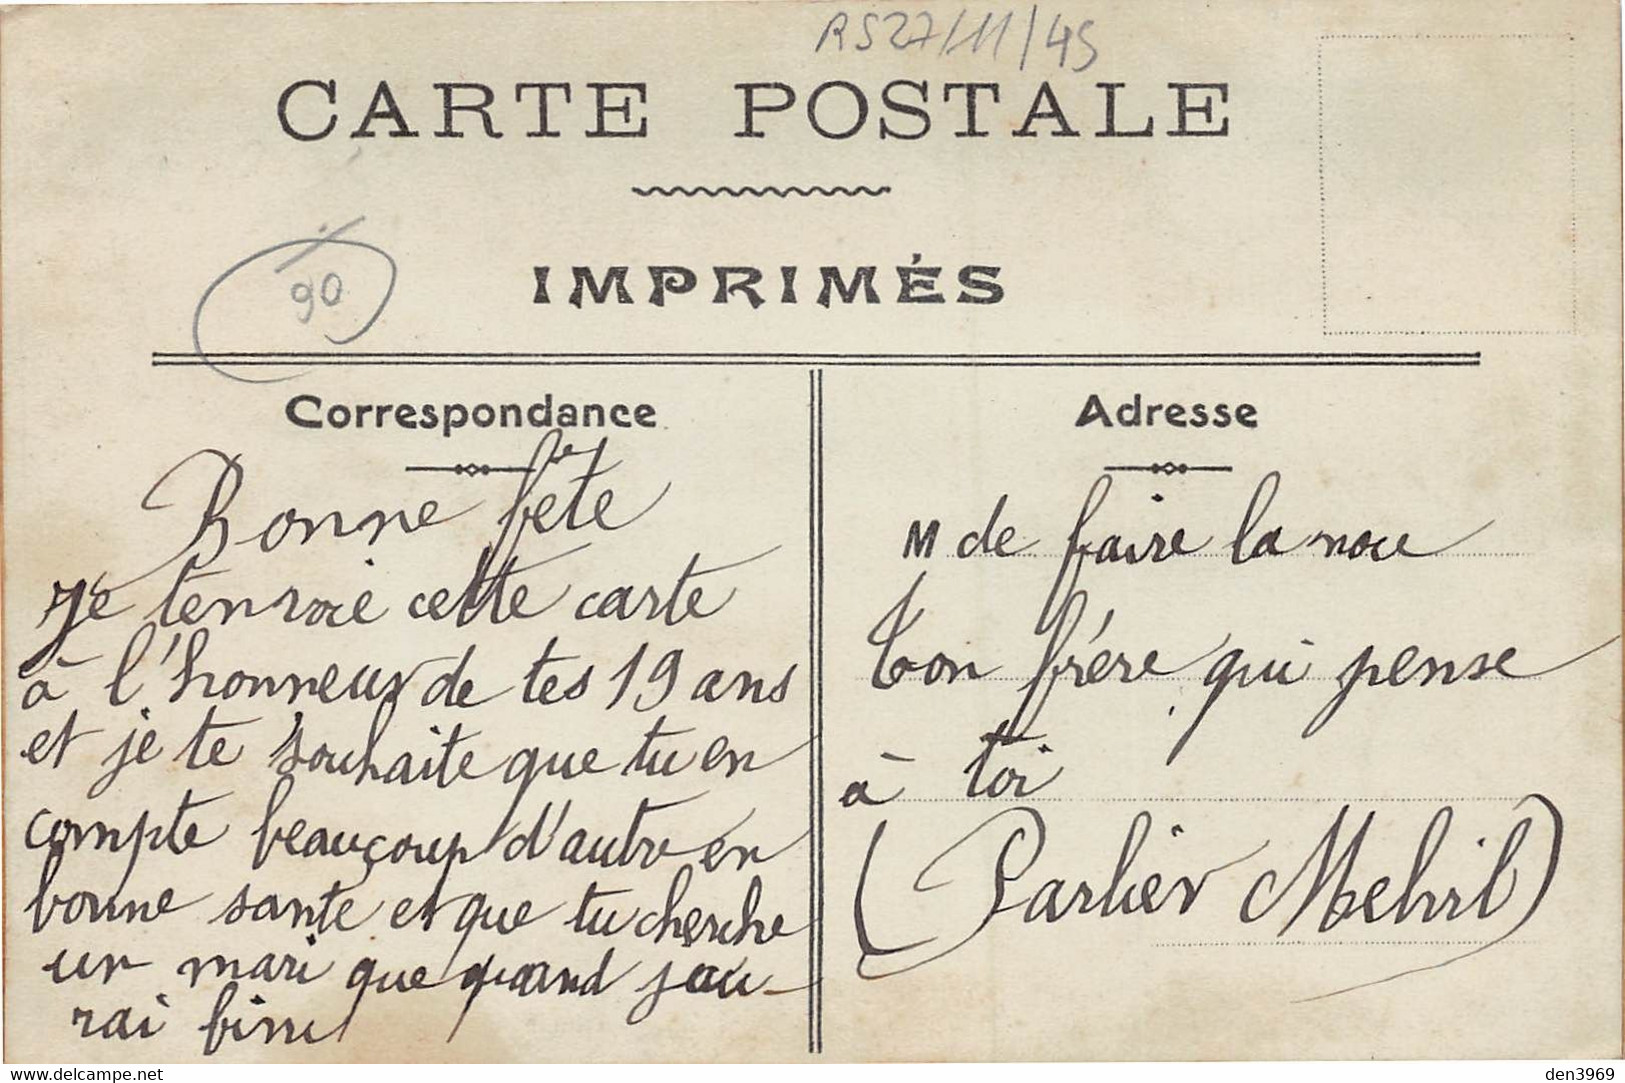 RS27/11/45
CARTE POSTALE
90
IMPRIMÉS
Correspondance
Bonne fête
Je tenvoie cette carte
à l'honneur de tes 19 ans
et je te souhaite que tu en
compte beaucoup d'autre en
bonne sante et que tu cherche
un mari que quand jau-
rai fini
Adresse
M de faire la noce
ton frére qui pense
à toi
(Parlier
www.delcampe.net
den3969